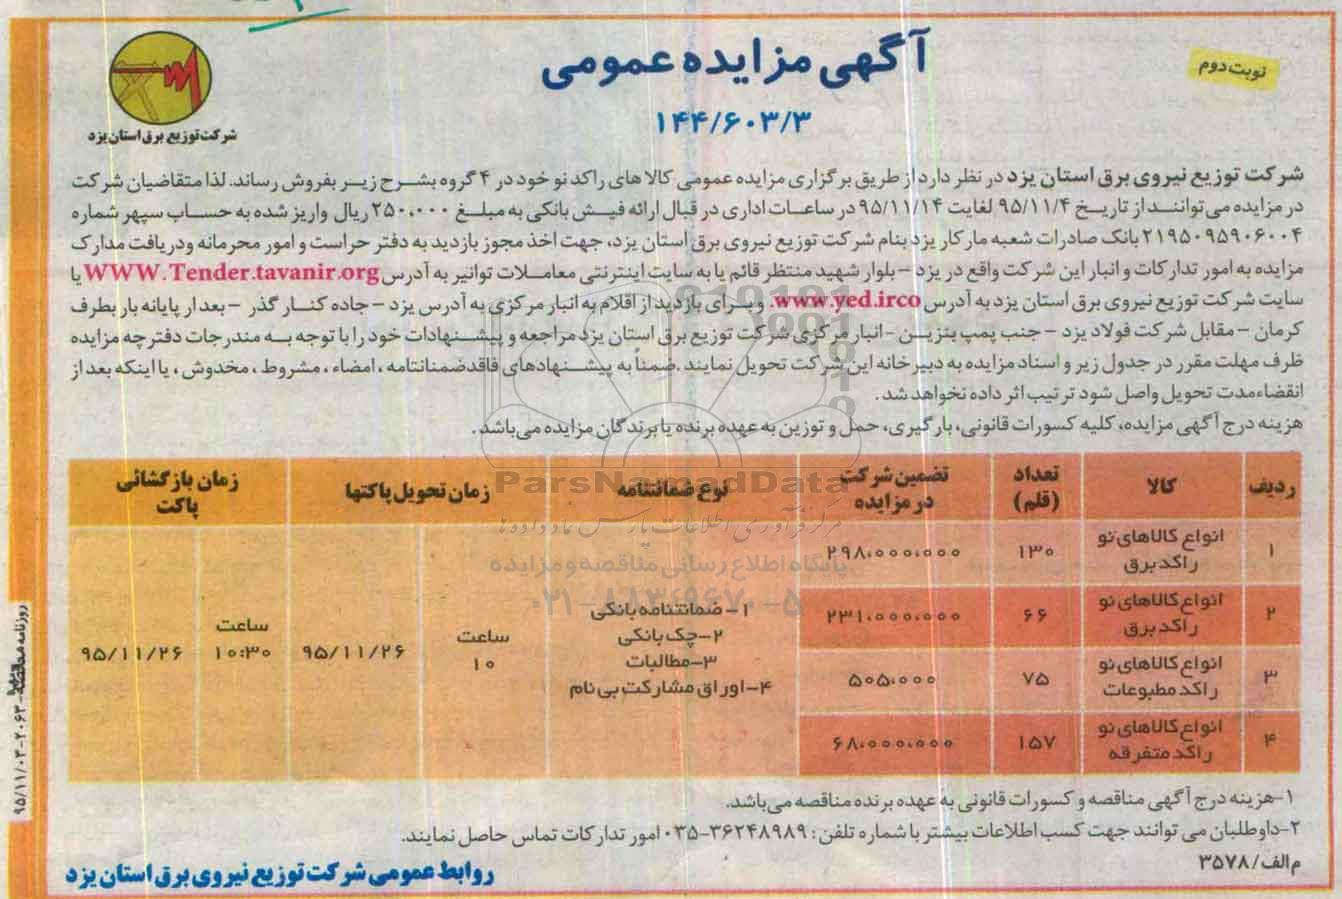 نوبت دوم
آگهی مزایده عمومی
۱۴۴/۶۰۳/۳
شرکت توزیع برق استان یزد
شرکت توزیع نیروی برق استان یزد در نظر دارد از طریق برگزاری مزایده عمومی کالا های راکد نو خود در ۴ گروه بشرح زیر بفروش رساند. لذا متقاضیان شرکت
در مزایده می توانند از تاریخ ۹۵/۱۱/۴ لغایت ۹۵/۱۱/۱۴ در ساعات اداری در قبال ارائه فیش بانکی به مبلغ ۲۵۰،۰۰۰ ریال واریز شده به حساب سپهر شماره
۲۱۹۵۰۹۵۹۰۶۰۰۴ بانک صادرات شعبه مارکار یزد بنام شرکت توزیع نیروی برق استان یزد، جهت اخذ مجوز بازدید به دفتر حراست و امور محرمانه ودریافت مدارک
مزایده به امور تدارکات و انبار این شرکت واقع در یزد – بلوار شهید منتظر قائم یا به سایت اینترنتی معاملات توانیر به آدرس WWW.Tender.tavanir.org یا
سایت شرکت توزیع نیروی برق استان یزد به آدرس www.yed.irco. و برای بازدید از اقلام به انبار مرکزی به آدرس یزد – جاده کنار گذر – بعد از پایانه بار بطرف
کرمان – مقابل شرکت فولاد یزد – جنب پمپ بنزین – انبار مرکزی شرکت توزیع برق استان یزد مراجعه و پیشنهادات خود را با توجه به مندرجات دفترچه مزایده
ظرف مهلت مقرر در جدول زیر و اسناد مزایده به دبیرخانه این شرکت تحویل نمایند .ضمناً به پیشنهادهای فاقدضمانتامه ، امضاء ، مشروط ، مخدوش ، یا اینکه بعد از
انقضاءمدت تحویل واصل شود ترتیب اثر داده نخواهد شد .
هزینه درج آگهی مزایده، کلیه کسورات قانونی، بارگیری، حمل و توزین به عهده برنده یا برندگان مزایده می باشد .
ردیف	کالا	تعداد (قلم)	تضمین شرکت در مزایده	نوع ضمانتنامه	زمان تحویل پاکتها	زمان بازگشائی پاکت
۱	انواع کالاهای نو راکد برق	۱۳۰	۲۹۸،۰۰۰،۰۰۰
۲	انواع کالاهای نو راکد برق	۶۶	۲۳۱،۰۰۰،۰۰۰
۳	انواع کالاهای نو راکد مطبوعات	۷۵	۵۰۵،۰۰۰
۴	انواع کالاهای نو راکد متفرقه	۱۵۷	۶۸،۰۰۰،۰۰۰
۱- ضمانتنامه بانکی
۲-چک بانکی
۳-مطالبات
۴-اوراق مشارکت بی نام
ساعت ۱۰	۹۵/۱۱/۲۶
ساعت ۱۰:۳۰	۹۵/۱۱/۲۶
ParsNamadData
مرکز فرآوری اطلاعات پارس نماد داده ها
پایگاه اطلاع رسانی مناقصه و مزایده
۰۲۱-۸۸۳۴۹۶۷۰-۵
۱-هزینه درج آگهی مناقصه و کسورات قانونی به عهده برنده مناقصه می باشد.
۲-داوطلبان می توانند جهت کسب اطلاعات بیشتر با شماره تلفن: ۳۶۲۴۸۹۸۹-۰۳۵ امور تدارکات تماس حاصل نمایند.
م الف/ ۳۵۷۸
روابط عمومی شرکت توزیع نیروی برق استان یزد